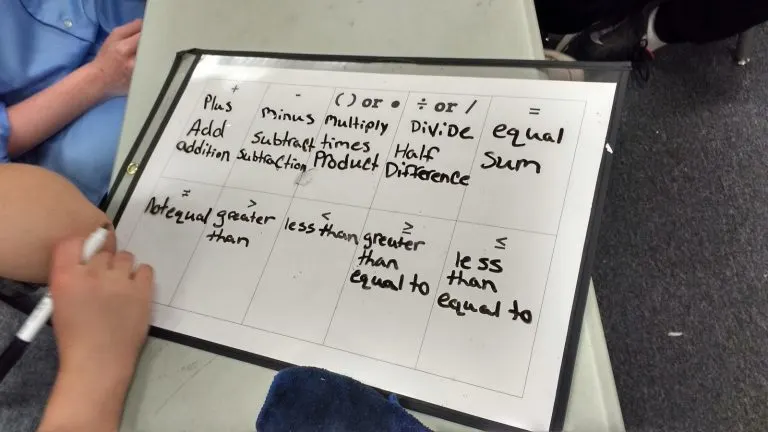 +
Plus
Add
addition
-
minus
Subtract
Subtraction
( ) or •
Multiply
times
Product
÷ or /
Divide
Half
Difference
=
equal
sum
≠
Not equal
>
greater
than
<
less than
≥
greater
than
equal to
≤
less
than
equal to